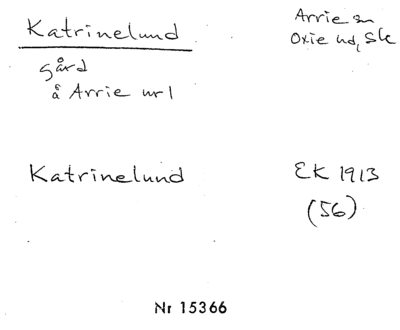 Katrinelund
Arrie sn
Oxie hd, Sk
gård
å Arrie nr 1
Katrinelund
EK 1913
(56)
Nr 15366